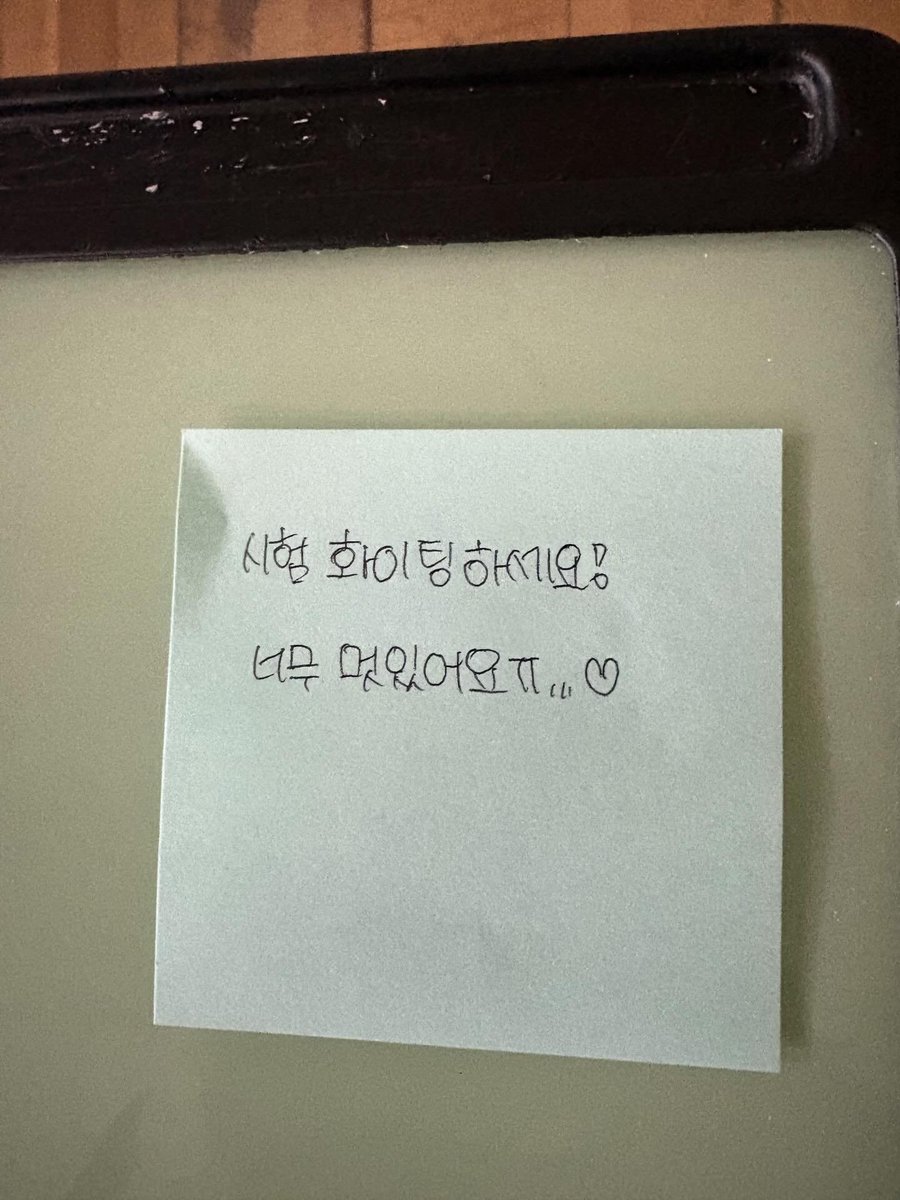 시험 화이팅하세요!
너무 멋있어요ㅠ,,, ♡